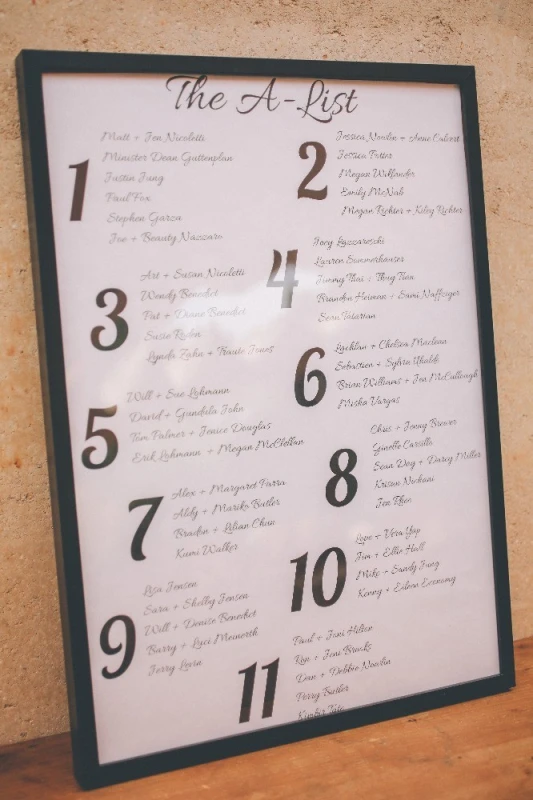 The A-List
1
Matt + Jen Nicoletti
Minister Dean Guttenplan
Justin Jung
Paul Fox
Stephen Garza
Joe + Beauty Nazzaro
2
Jessica Nowlin + Anne Calvert
Jessica Potter
Megan Wiklander
Emily McNab
Megan Richter + Kiley Richter
3
Art + Susan Nicoletti
Wendy Benedict
Pat + Diane Benedict
Susie Roden
Lynda Zahn + Traute Jones
4
Joey Lazzareschi
Lauren Summerhauser
Jimmy Thai + Thuy Tran
Brandon Heiman + Sami Naffziger
Sean
5
Will + Sue Lohmann
David + Gundula John
Tom Palmer + Janice Douglas
Erik Lohmann + Megan McClellan
6
Lachlan + Chelsea Maclean
Sebastien + Sylvia Ubaldi
Brian Williams + Jen McCullough
Misha Vargas
7
Alex + Margaret Parra
Addy + Mariko Butler
Braden + Lilian Chan
Kumi Walker
8
Chris + Jenny Brewer
Ginelle Cassilla
Sean Day + Darcy Miller
Kristen
Jen Rhee
9
Lisa Jensen
Sara + Shelby Jensen
Will + Denise Benedict
Barry + Luci Meinerth
Jerry Lovin
10
+ Vera Yip
Jim + Ellie Hall
Mike + Sandy Jung
Kenny + Eileen Economy
11
Paul + Jani Hilton
Ron + Joni Brooks
Dean + Debbie Nowlin
Perry Butler
Kimber Tate